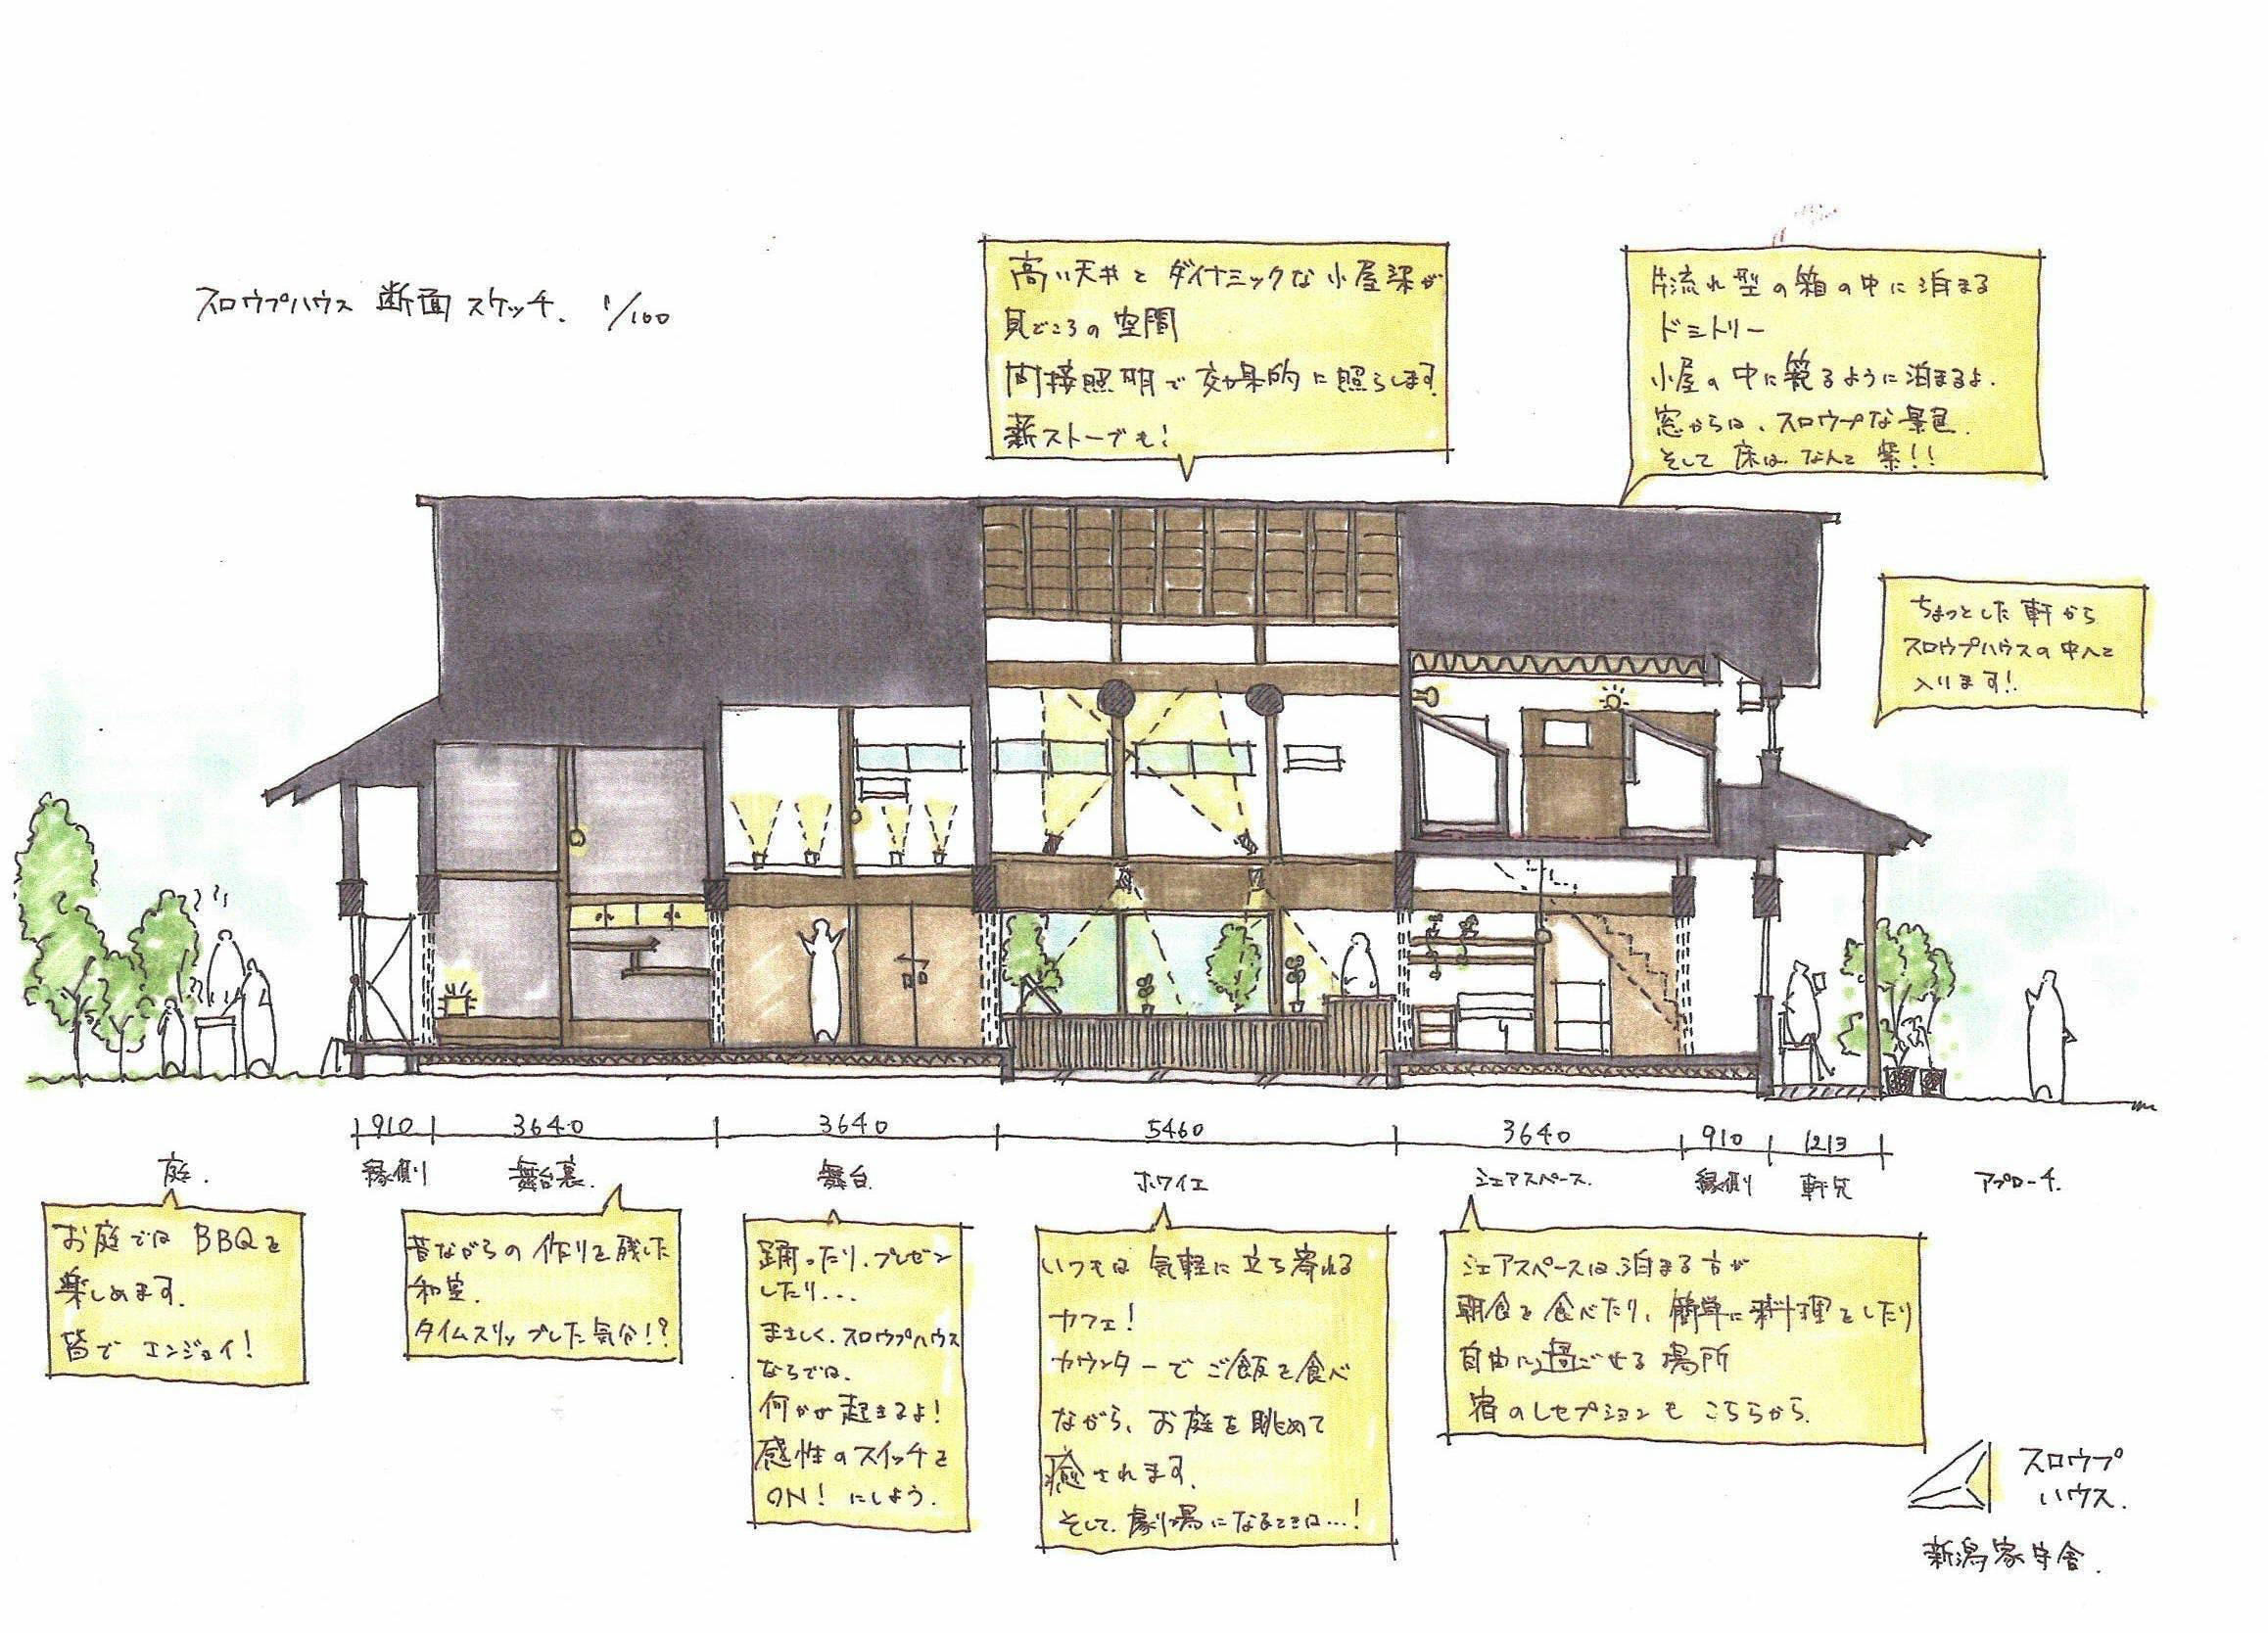 スロウプハウス 断面スケッチ. 1/100
高い天井とダイナミックな小屋梁が
見どころの空間
間接照明で効果的に照らします.
薪ストーブも!
片流れ型の箱の中に泊まる
ドミトリー
小屋の中に篭るように泊まるよ.
窓からは、スロウプな景色.
そして床は、なんと紫!!
ちょっとした軒から
スロウプハウスの中へと
入ります!
910
3640
3640
5460
3640
910
1213
庭.
縁側
舞台裏.
舞台.
ホワイエ
シェアスペース.
縁側
軒先
アプローチ.
お庭ではBBQを
楽しめます.
皆でエンジョイ!
昔ながらの作りを残した
和室.
タイムスリップした気分!?
踊ったり、プレゼン
したり...
まさしく、スロウプハウス
ならでは.
何かが起きるよ!
感性のスイッチを
ON! にしよう.
いつもは気軽に立ち寄れる
カフェ!
カウンターでご飯を食べ
ながら、お庭を眺めて
癒されます.
そして、劇場になるときは...!
シェアスペースは、泊まる方が
朝食を食べたり、簡単に料理をしたり
自由に過ごせる場所
宿のレセプションもこちらから.
スロウプ
ハウス.
新潟家守舎.